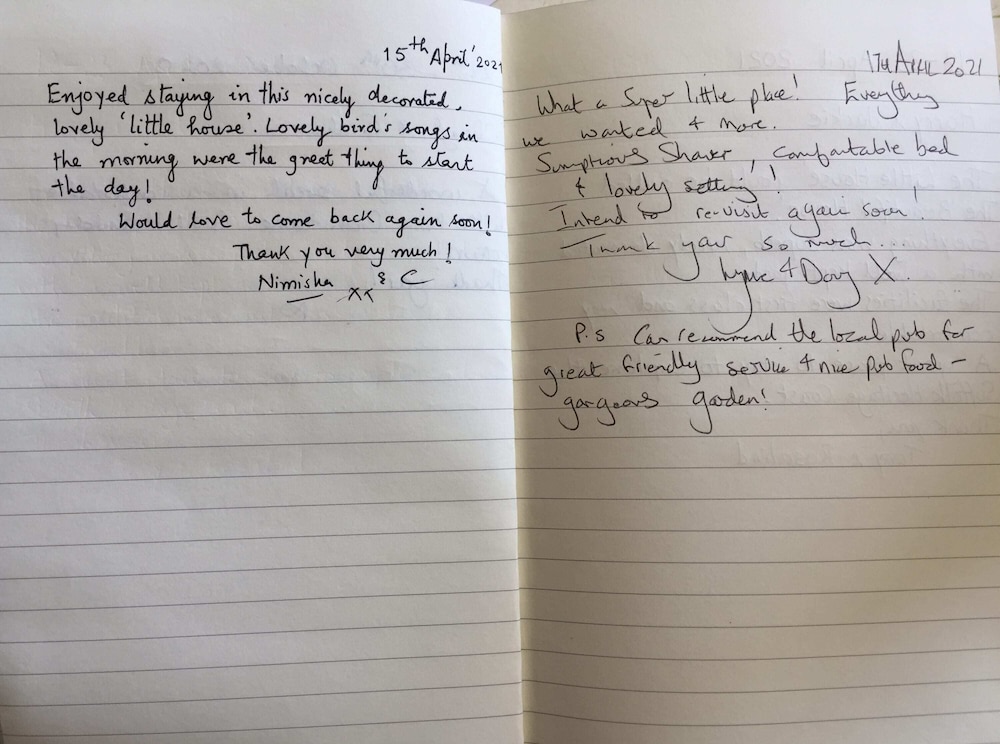 15th April' 2021
Enjoyed staying in this nicely decorated,
lovely 'little house'. Lovely bird's songs in
the morning were the greet thing to start
the day!
Would love to come back again soon!
Thank you very much!
Nimisha & C
xx
17th APRIL 2021
What a Super little place! Everything
we wanted & more.
Sumptious Shower, comfortable bed
& lovely setting!
Intend to re-visit again soon!
Thank you so much...
& X.
P.S Can recommend the local pub for
great friendly service & nice pub food -
gorgeous garden!